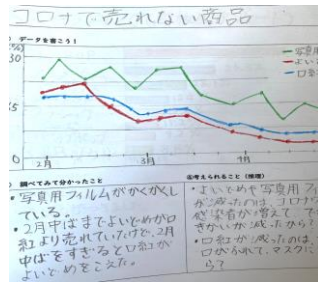 コロナで売れない商品
データを書こう!
30
写真用
よい
口紅
15
0
2月
3月
4月
調べてみて分かったこと
・写真用フィルムがかくかくし
ている。
・2月中ばまでよいどめが口
紅より売れていたけど、2月
中ばをすぎると口紅が
よいどめをこえた。
④考えられること(推理)
・よいどめや写真用フィ
が減ったのは、コロナ
感染者が増えて
きかいが減ったから?
・口紅が減ったのは
口がかくれて、マスクに
ら?